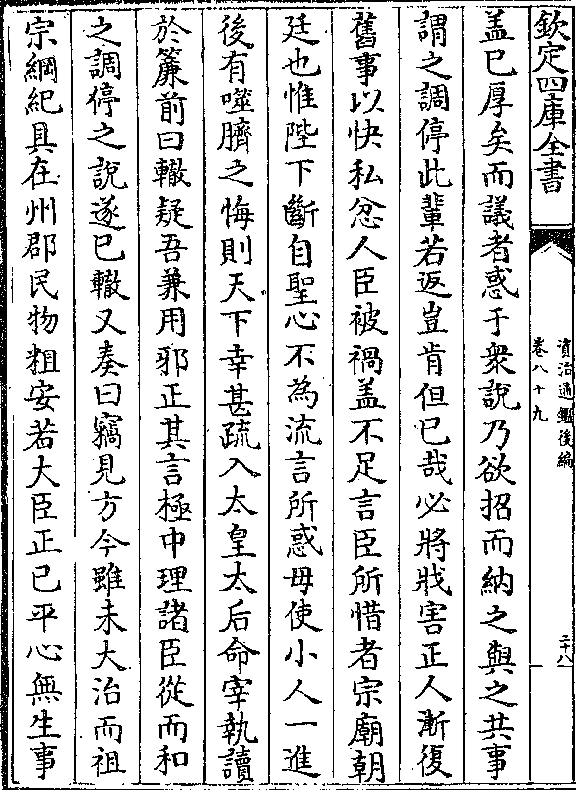 欽定四庫全書
資治通鑑後編
卷八十九
二十八
盖已厚矣而議者惑于衆說乃欲招而納之與之共事
謂之調停此輩若返豈肯但已哉必將戕害正人漸復
舊事以快私忿人臣被禍盖不足言臣所惜者宗廟朝
廷也惟陛下斷自聖心不為流言所惑毋使小人一進
後有噬臍之悔則天下幸甚疏入太皇太后命宰執讀
於簾前曰轍疑吾兼用邪正其言極中理諸臣從而和
之調停之說遂已轍又奏曰竊見方今雖未大治而祖
宗綱紀具在州郡民物粗安若大臣正已平心無生事